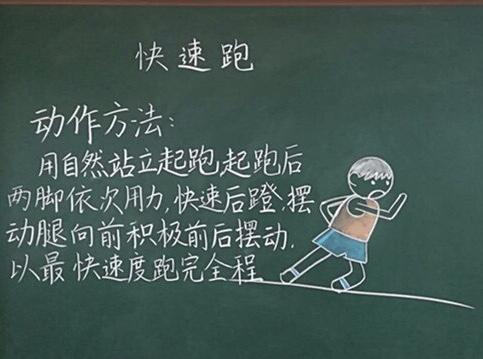 快速跑
动作方法:
用自然站立起跑,起跑后
两脚依次用力,快速后蹬,摆
动腿向前积极前后摆动.
以最快速度跑完全程